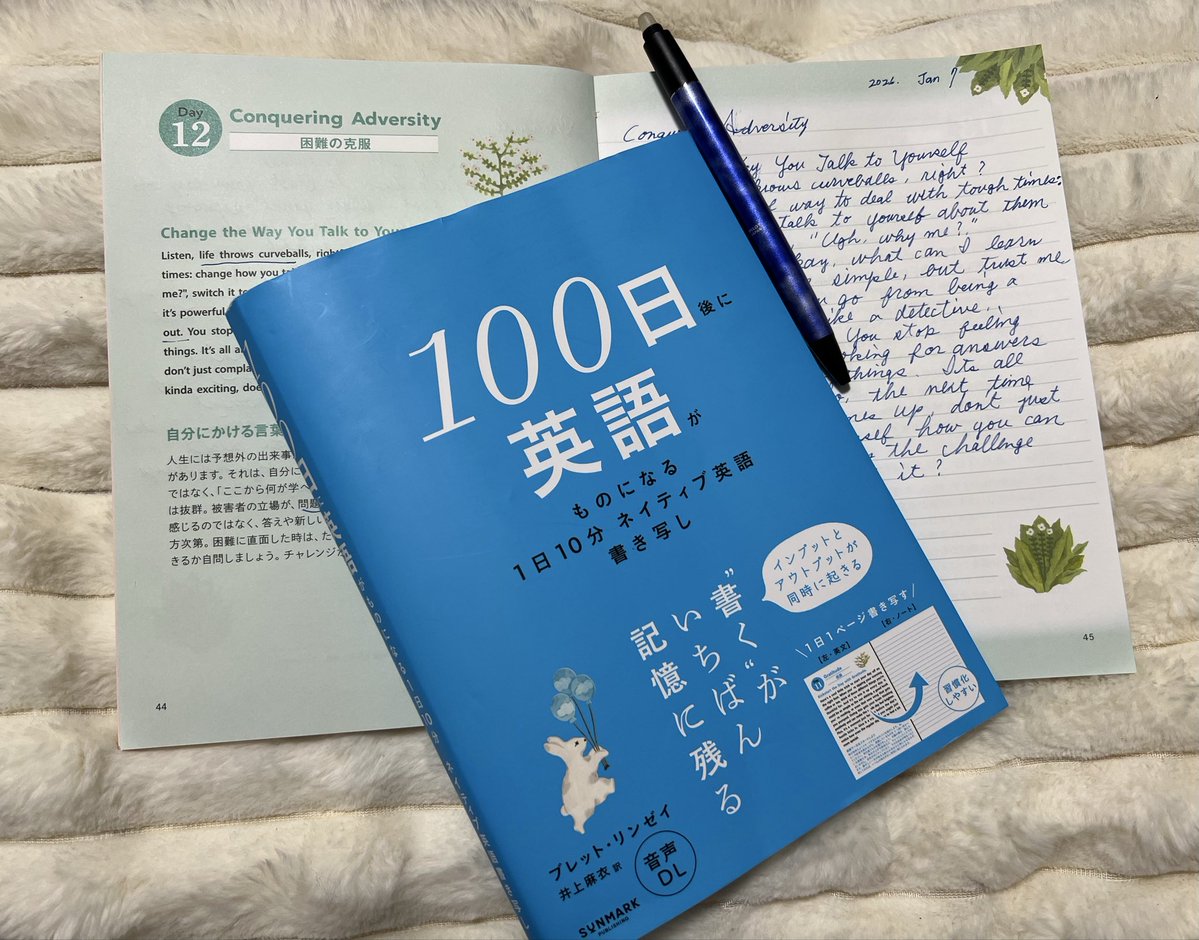 Day
12
Conquering Adversity
困難の克服
Change the Way You Talk to You
Listen, life throws curveballs, righ
times: change how you ta
me?", switch it to
it's powerful
out. You stop
things. It's all a
don't just compla
kinda exciting, doe
自分にかける言葉
人生には予想外の出来事
があります。それは、自分に
ではなく、「ここから何が学べ
は抜群。被害者の立場が、問題
感じるのではなく、答えや新しい
方次第。困難に直面した時は、た
きるか自問しましょう。チャレンジが
44
2026. Jan 7
Conqu Adversity
y You Talk to Yourself
hrows curveballs, right?
l way to deal with tough times:
talk to yourself about them
"Ugh, why me?"
kay, what can I learn
simple, but trust me
u go from being a
ike a detective..
You stop feeling
oking for answers
things. Its all
, the next time
mes up, dont just
self how you can
s the challenge
it?
45
100日後に
英語が
ものになる
1日10分 ネイティブ英語
書き写し
インプットと
アウトプットが
同時に起きる
"書く"が
いちばん
記憶に残る
1日1ページ書き写す
【左・英文】
【右・ノート】
11
Gratitude
習慣化
しやすい
ブレット・リンゼイ
井上麻衣 訳
音声
DL
SUNMARK
PUBLISHING